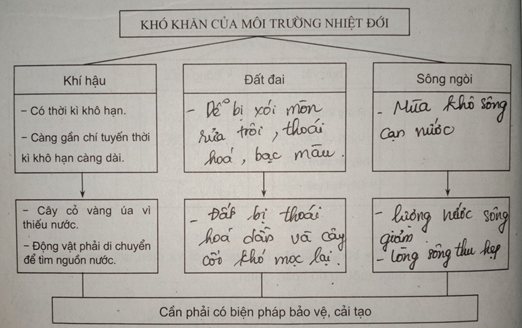 KHÓ KHĂN CỦA MÔI TRƯỜNG NHIỆT ĐỚI
Khí hậu
– Có thời kì khô hạn.
– Càng gần chí tuyến thời
kì khô hạn càng dài.
– Cây cỏ vàng úa vì
thiếu nước.
– Động vật phải di chuyển
để tìm nguồn nước.
Đất đai
– Dễ bị xói mòn
rửa trôi, thoái
hoá, bạc màu.
– Đất bị thoái
hoá dần và cây
cối khó mọc lại.
Sông ngòi
- Mùa khô sông
cạn nước
- lượng nước sông
giảm
- lòng sông thu hẹp
Cần phải có biện pháp bảo vệ, cải tạo